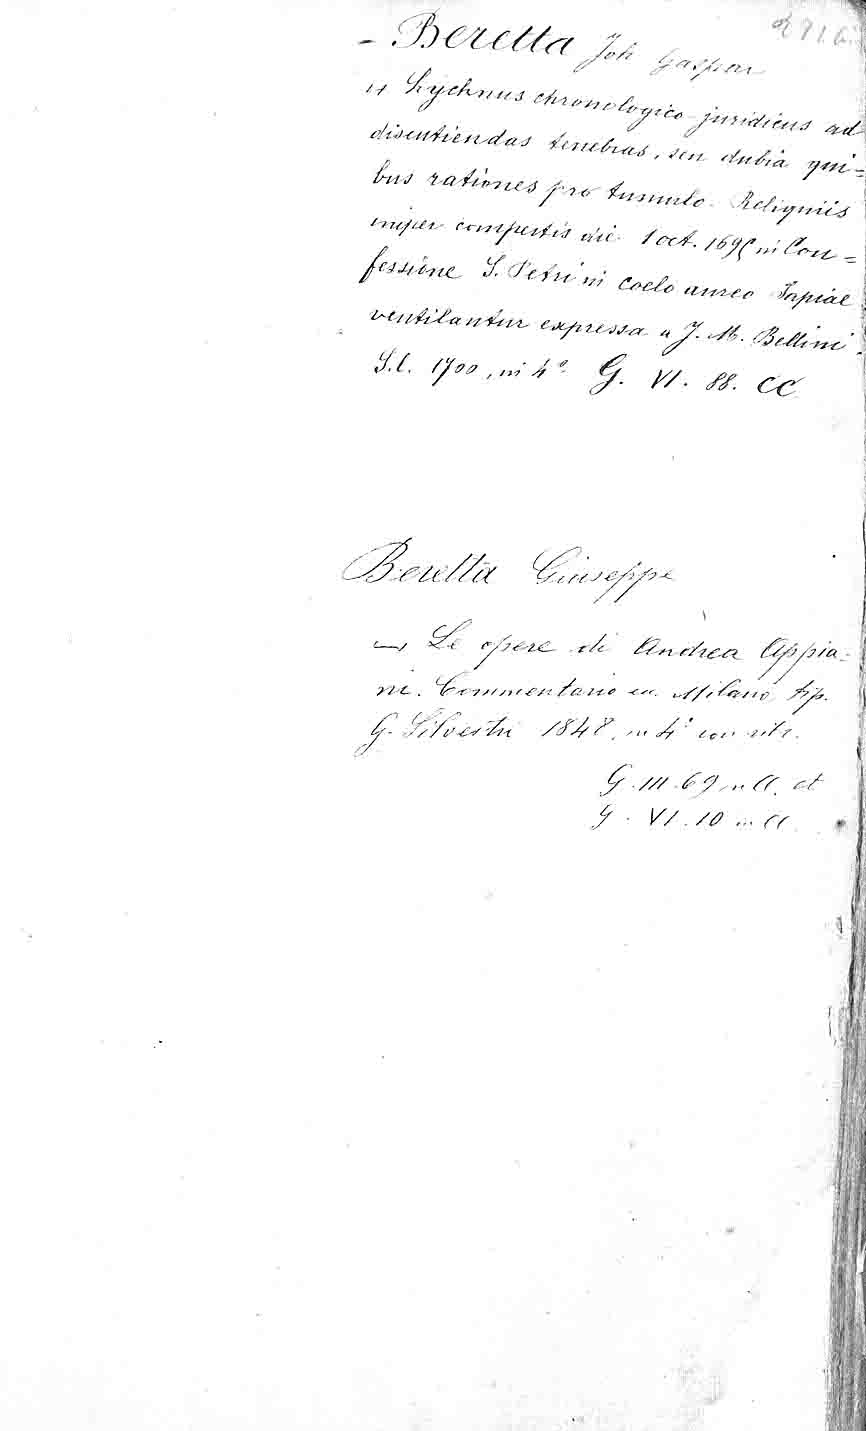 - Beretta Joh Gaspar
Lychnus chronologico-juridicus ad
discutiendas tenebras, seu dubia qui=
bus rationes pro tumulo Reliquiis
nuper compertis die 1 oct. 1695 in Con=
fessione S. Petri in coelo aureo Papiae
ventilantur expressa a J. M. Bellini.
S.l. 1700, in 4° G. VI. 88. CC
Beretta Giuseppe
Le opere di Andrea Appia=
ni. Commentario ec. Milano, tip.
G. Silvestri 1848, in 4° con ritr.
G. III. 69 in CC. et
G. VI. 10 in CC.